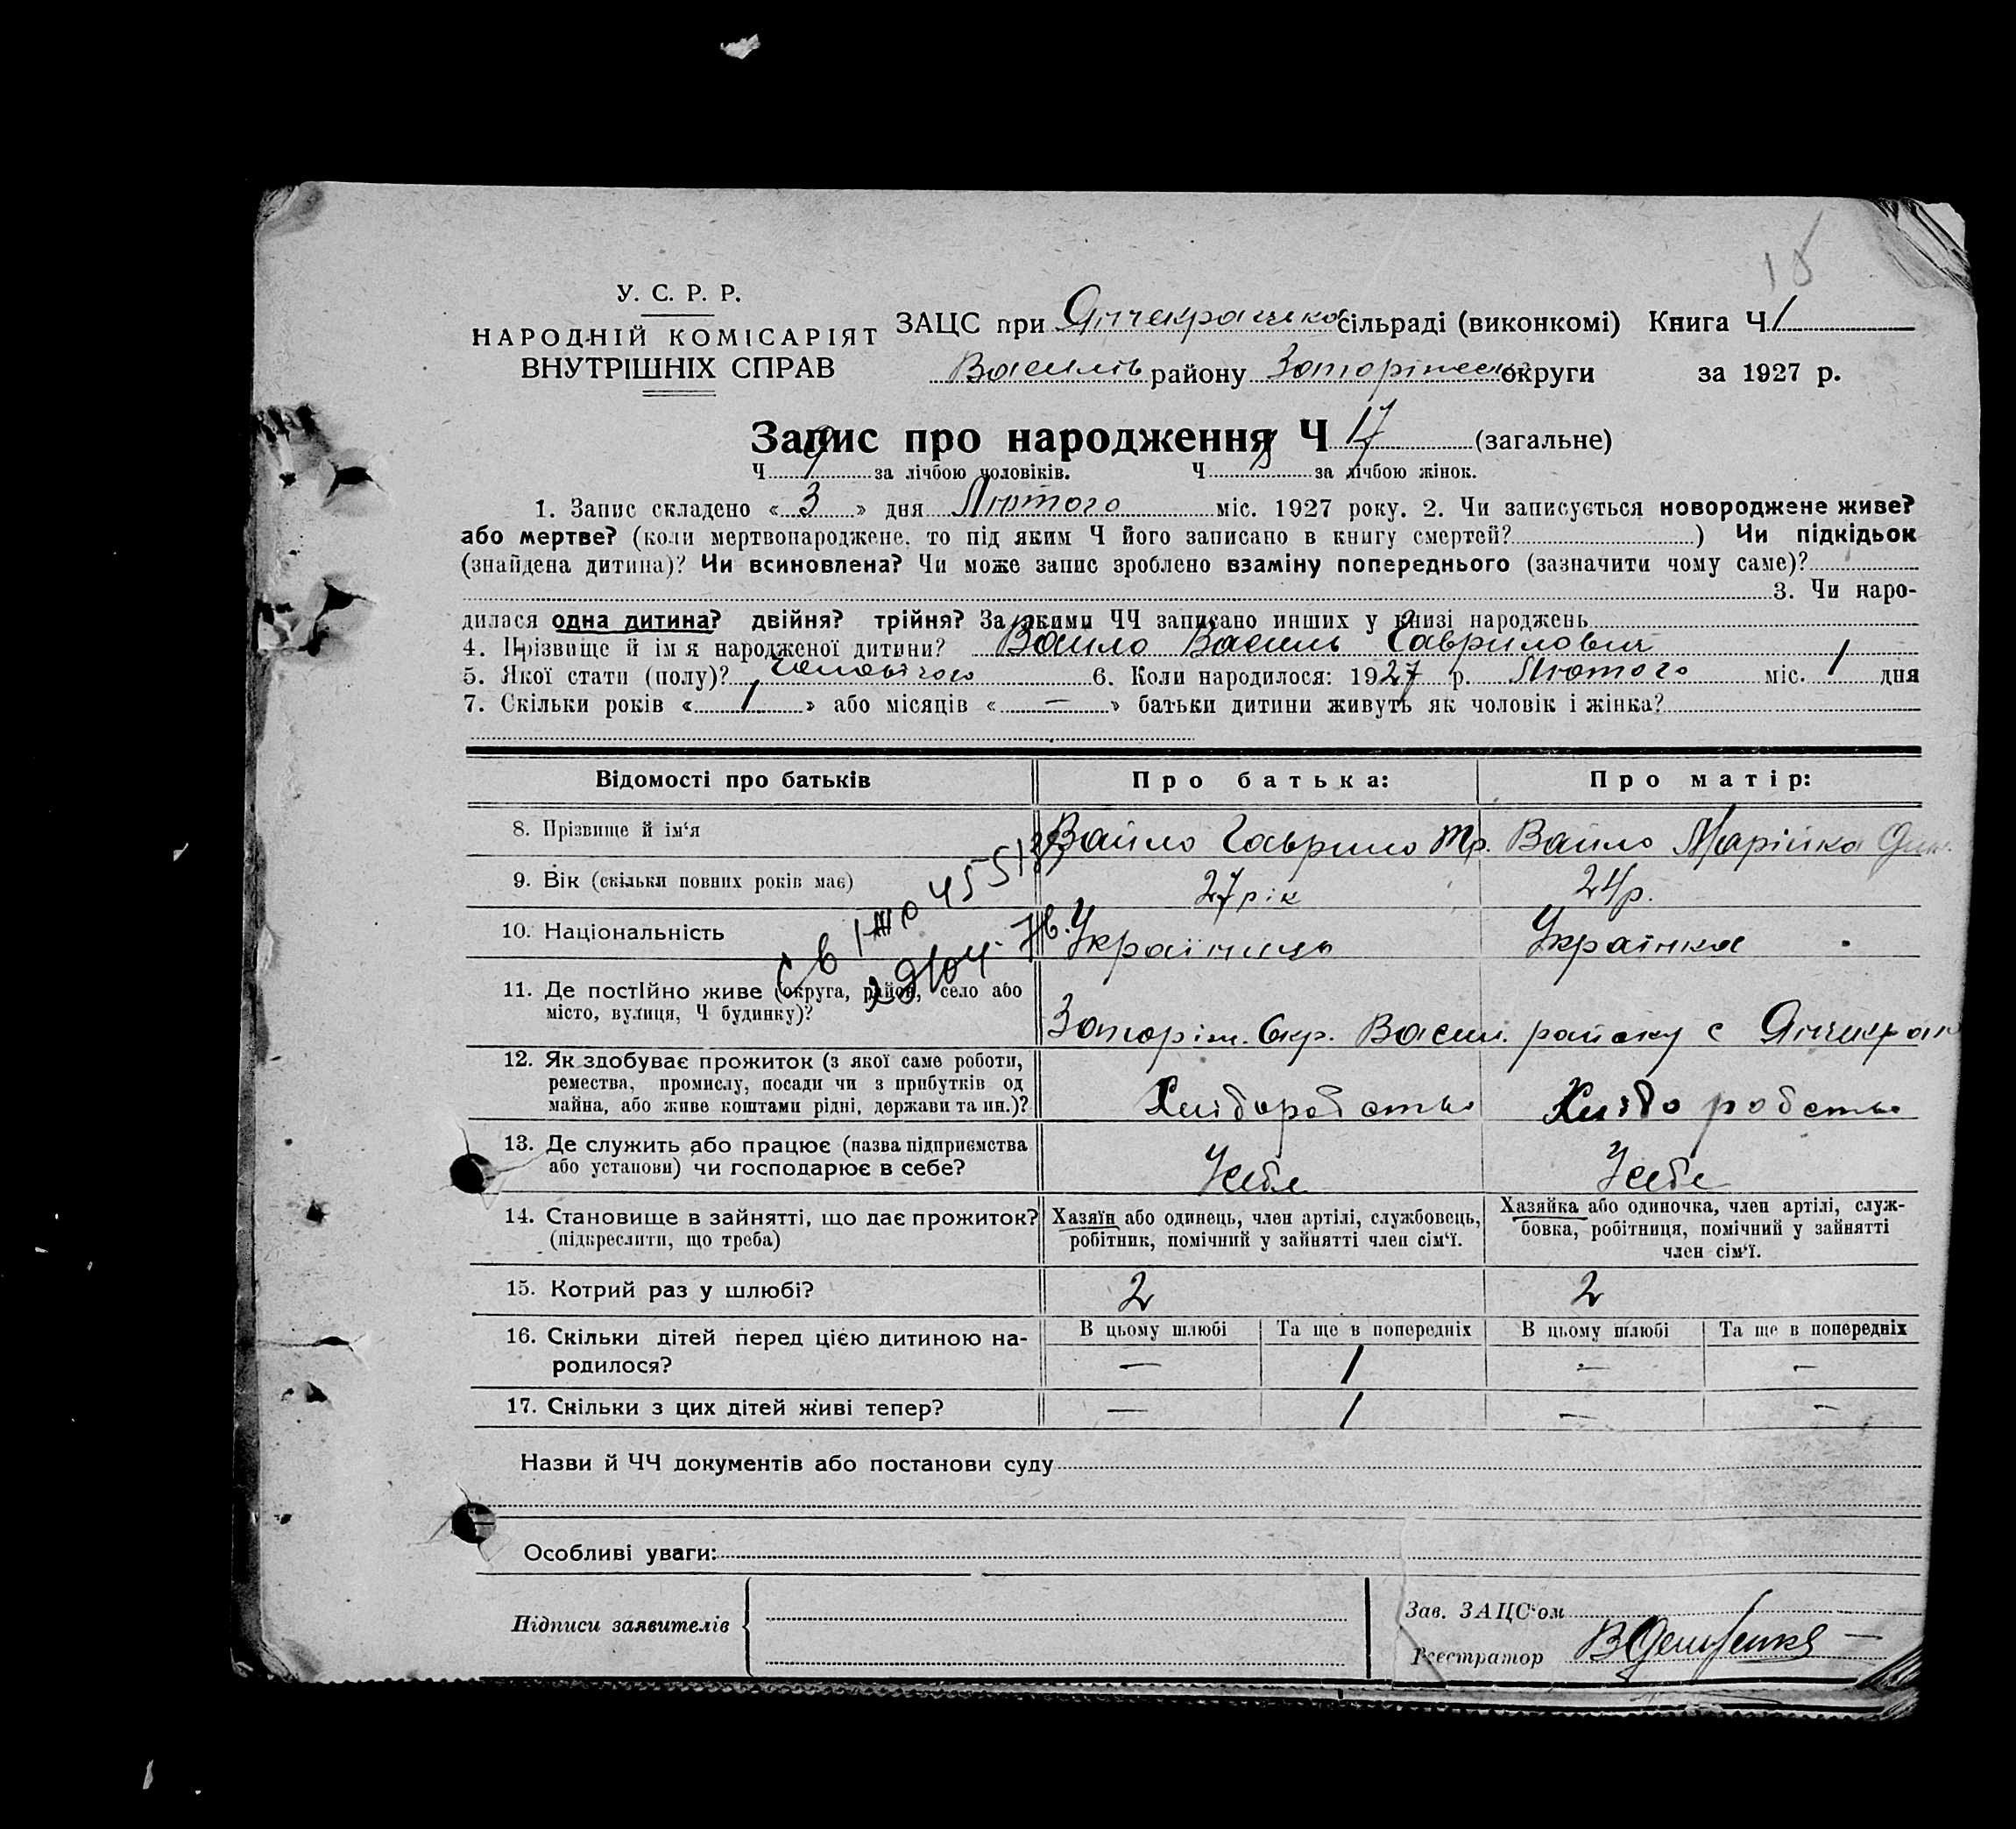 18
У. С. Р. Р.
НАРОДНІЙ КОМІСАРІЯТ
ВНУТРІШНІХ СПРАВ
ЗАЦС при Янчекрацька сільраді (виконкомі) Книга Ч 1
Василів району Запоріжськ округи за 1927 р.
Запис про народження Ч 17 (загальне)
Ч 9 за лічбою чоловіків. Ч 8 за лічбою жінок.
1. Запис складено « 3 » дня Лютого міс. 1927 року. 2. Чи записується новороджене живе?
або мертве? (коли мертвонароджене, то під яким Ч його записано в книгу смертей? ) Чи підкідьок
(знайдена дитина)? Чи всиновлена? Чи може запис зроблено взаміну попереднього (зазначити чому саме)?
3. Чи наро-
дилася одна дитина? двійня? трійня? За якими ЧЧ записано инших у книзі народжень
4. Прізвище й ім'я народженої дитини? Вайло Василь Гаврилович
5. Якої стати (полу)? чоловічого 6. Коли народилося: 1927 р. Лютого міс. 1 дня
7. Скільки років « 1 » або місяців « — » батьки дитини живуть як чоловік і жінка?
Відомості про батьків Про батька: Про матір:
8. Прізвище й ім'я Вайло Гаврило Тр. Вайло Марійка
9. Вік (скільки повних років має) 27 рік 24 р.
10. Національність Українець Українка
11. Де постійно живе (округа, район, село або
місто, вулиця, Ч будинку)?
Запоріж. Окр. Васил. району с Янчикрак
12. Як здобуває прожиток (з якої саме роботи,
ремества, промислу, посади чи з прибутків од
майна, або живе коштами рідні, держави та ин.)?
Хліборобство Хліборобство
13. Де служить або працює (назва підприємства
або установи) чи господарює в себе?
У себе У себе
14. Становище в зайнятті, що дає прожиток?
(підкреслити, що треба)
Хазяїн або одинець, член артілі, службовець,
робітник, помічний у зайнятті член сім'ї.
Хазяйка або одиночка, член артілі, служ-
бовка, робітниця, помічний у зайнятті
член сім'ї.
15. Котрий раз у шлюбі? 2 2
16. Скільки дітей перед цією дитиною на-
родилося?
В цьому шлюбі Та ще в попередніх В цьому шлюбі Та ще в попередніх
— 1 — —
17. Скільки з цих дітей живі тепер? — 1 — —
Назви й ЧЧ документів або постанови суду
Особливі уваги:
Підписи заявителів
Зав. ЗАЦС'ом
Реєстратор